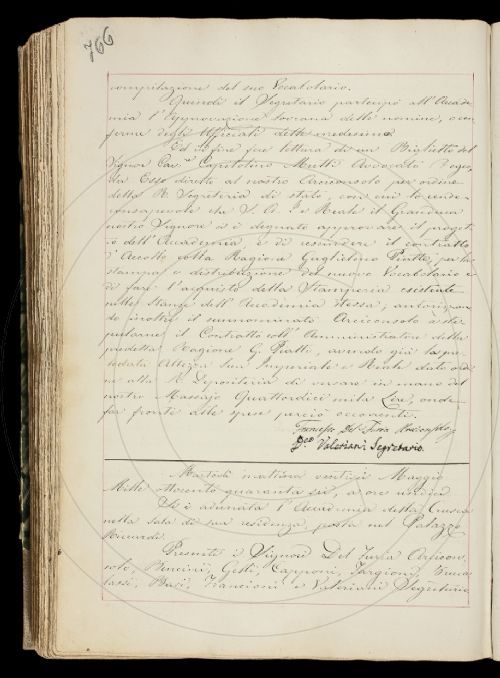 766
compilazione del suo Vocabolario.
Quindi il Segretario partecipò all'Accade-
mia l'approvazione sovrana delle nomine, o con-
ferme degli Ufficiali delle medesime
Ed in fine fece lettura di un Biglietto del
Signor Cav.re Capitolino Mutti Avvocato Regio,
da Esso diretto al nostro Arciconsolo per ordine
della R. Segreteria di Stato, con cui lo rende
consapevole che S. A. I. e Reale il Granduca
nostro Signore si è degnato approvare il proget-
to dell'Accademia, e di rescindere il contratto
d'Accollo colla Ragione Guglielmo Piatti, per la
stampa e distribuzione del nuovo Vocabolario e
di fare l'acquisto della Stamperia esistente
nelle Stanze dell'Accademia stessa; autorizzan-
do inoltre il sunnominato Arciconsolo a sti-
pularne il Contratto coll'Amministratore della
predetta Ragione G. Piatti, avendo già la pre-
lodata Altezza Sua Imperiale e Reale dato ordi-
ne alla R. Depositeria di versare in mano del
nostro Massajo Quattordici mila Lire, onde
far fronte alle spese perciò occorrenti.
Francesco Del Furia Arciconsolo
D.co Valeriani Segretario.
Martedì mattina ventisei Maggio
Mille ottocento quaranta sei, a ore undici
Si è adunata l'Accademia della Crusca
nella sala di sua residenza, posta nel Palazzo
Riccardi.
Presenti i Signori Del Furia Arcicon-
solo, Bencini, Gesti, Capponi, Targioni, Brucia-
lassi, Basi, Francioni e Valeriani Segretario